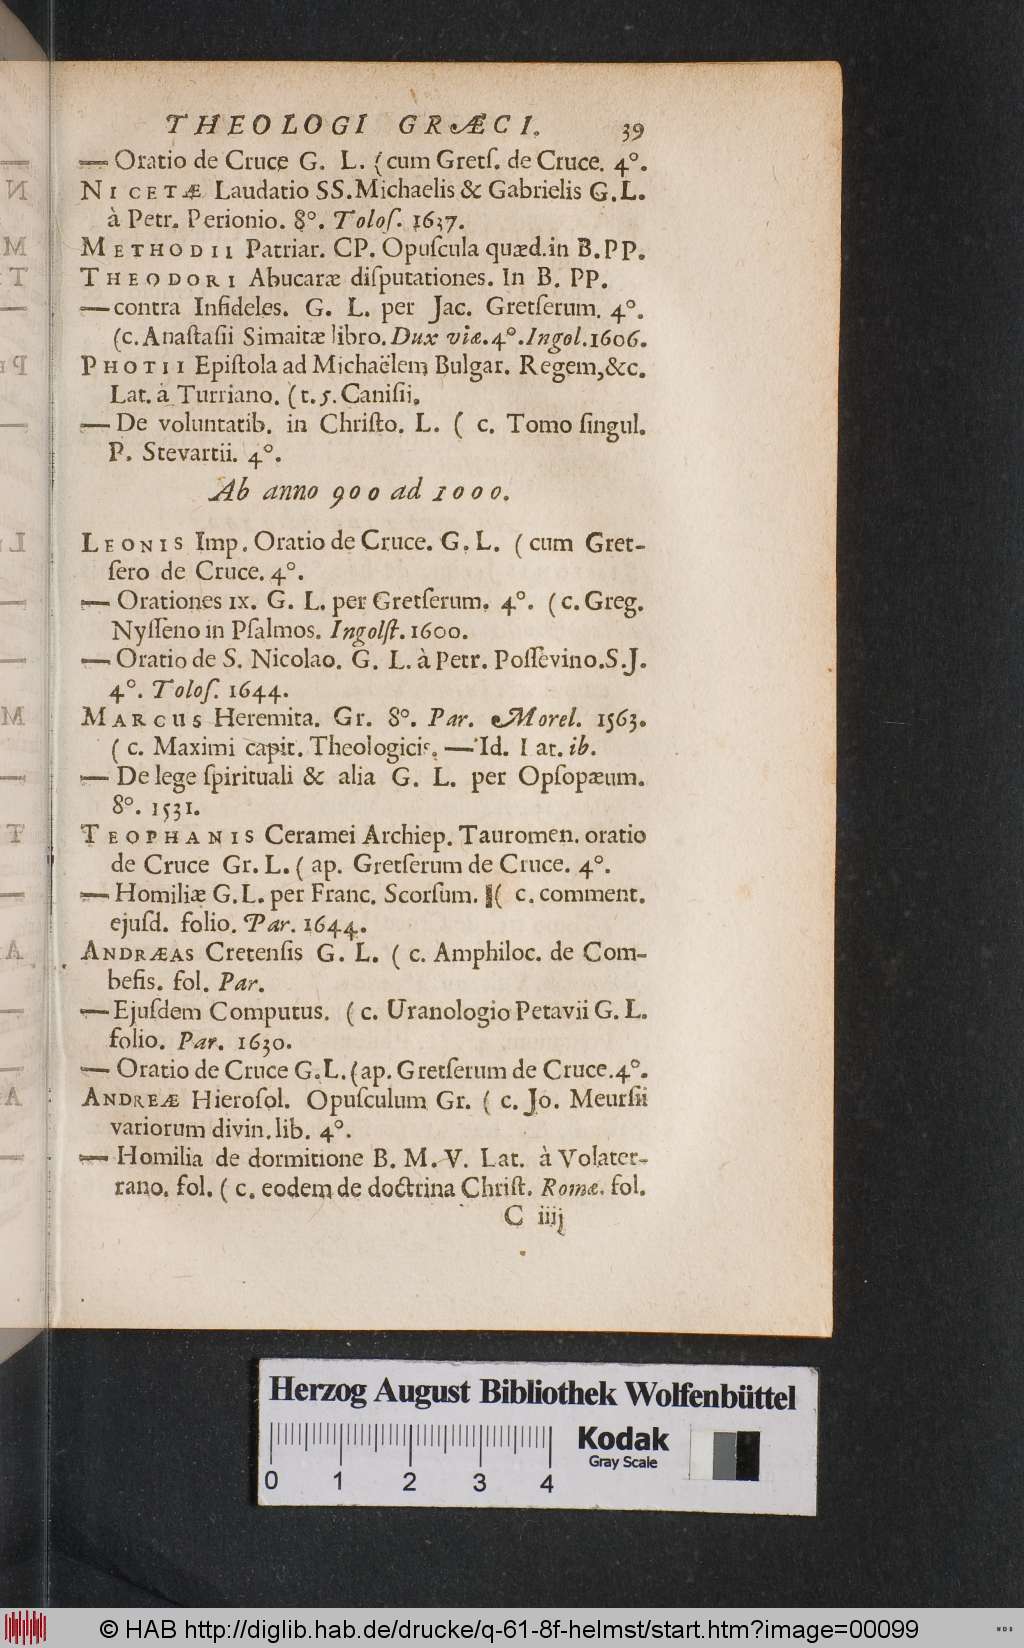 THEOLOGI GRÆCI. 39
— Oratio de Cruce G. L. (cum Gretſ. de Cruce. 4°.
NICETÆ Laudatio SS. Michaelis & Gabrielis G. L.
à Petr. Perionio. 8°. Toloſ. 1637.
METHODII Patriar. CP. Opuſcula quæd. in B. PP.
THEODORI Abucaræ diſputationes. In B. PP.
— contra Infideles. G. L. per Jac. Gretſerum. 4°.
(c. Anaſtaſii Simaitæ libro. Dux viæ. 4°. Ingol. 1606.
PHOTII Epiſtola ad Michaëlem Bulgar. Regem, &c.
Lat. à Turriano. (t. 5. Caniſii.
— De voluntatib. in Chriſto. L. ( c. Tomo ſingul.
P. Stevartii. 4°.
Ab anno 900 ad 1000.
LEONIS Imp. Oratio de Cruce. G. L. ( cum Gret-
ſero de Cruce. 4°.
— Orationes IX. G. L. per Gretſerum. 4°. (c. Greg.
Nyſſeno in Pſalmos. Ingolſt. 1600.
— Oratio de S. Nicolao. G. L. à Petr. Poſſevino. S. J.
4°. Toloſ. 1644.
MARCUS Heremita. Gr. 8°. Par. Morel. 1563.
( c. Maximi capit. Theologicis. — Id. Lat. ib.
— De lege ſpirituali & alia G. L. per Opſopæum.
8°. 1531.
TEOPHANIS Ceramei Archiep. Tauromen. oratio
de Cruce Gr. L. ( ap. Gretſerum de Cruce. 4°.
— Homiliæ G. L. per Franc. Scorſum. ( c. comment.
ejuſd. folio. Par. 1644.
ANDRÆAS Cretenſis G. L. ( c. Amphiloc. de Com-
befis. fol. Par.
— Ejuſdem Computus. ( c. Uranologio Petavii G. L.
folio. Par. 1630.
— Oratio de Cruce G. L. (ap. Gretſerum de Cruce. 4°.
ANDREÆ Hieroſol. Opuſculum Gr. ( c. Jo. Meurſii
variorum divin. lib. 4°.
— Homilia de dormitione B. M. V. Lat. à Volater-
rano. fol. ( c. eodem de doctrina Chriſt. Romæ. fol.
C iiij
Herzog August Bibliothek Wolfenbüttel
0 1 2 3 4
Kodak
Gray Scale
© HAB http://diglib.hab.de/drucke/q-61-8f-helmst/start.htm?image=00099